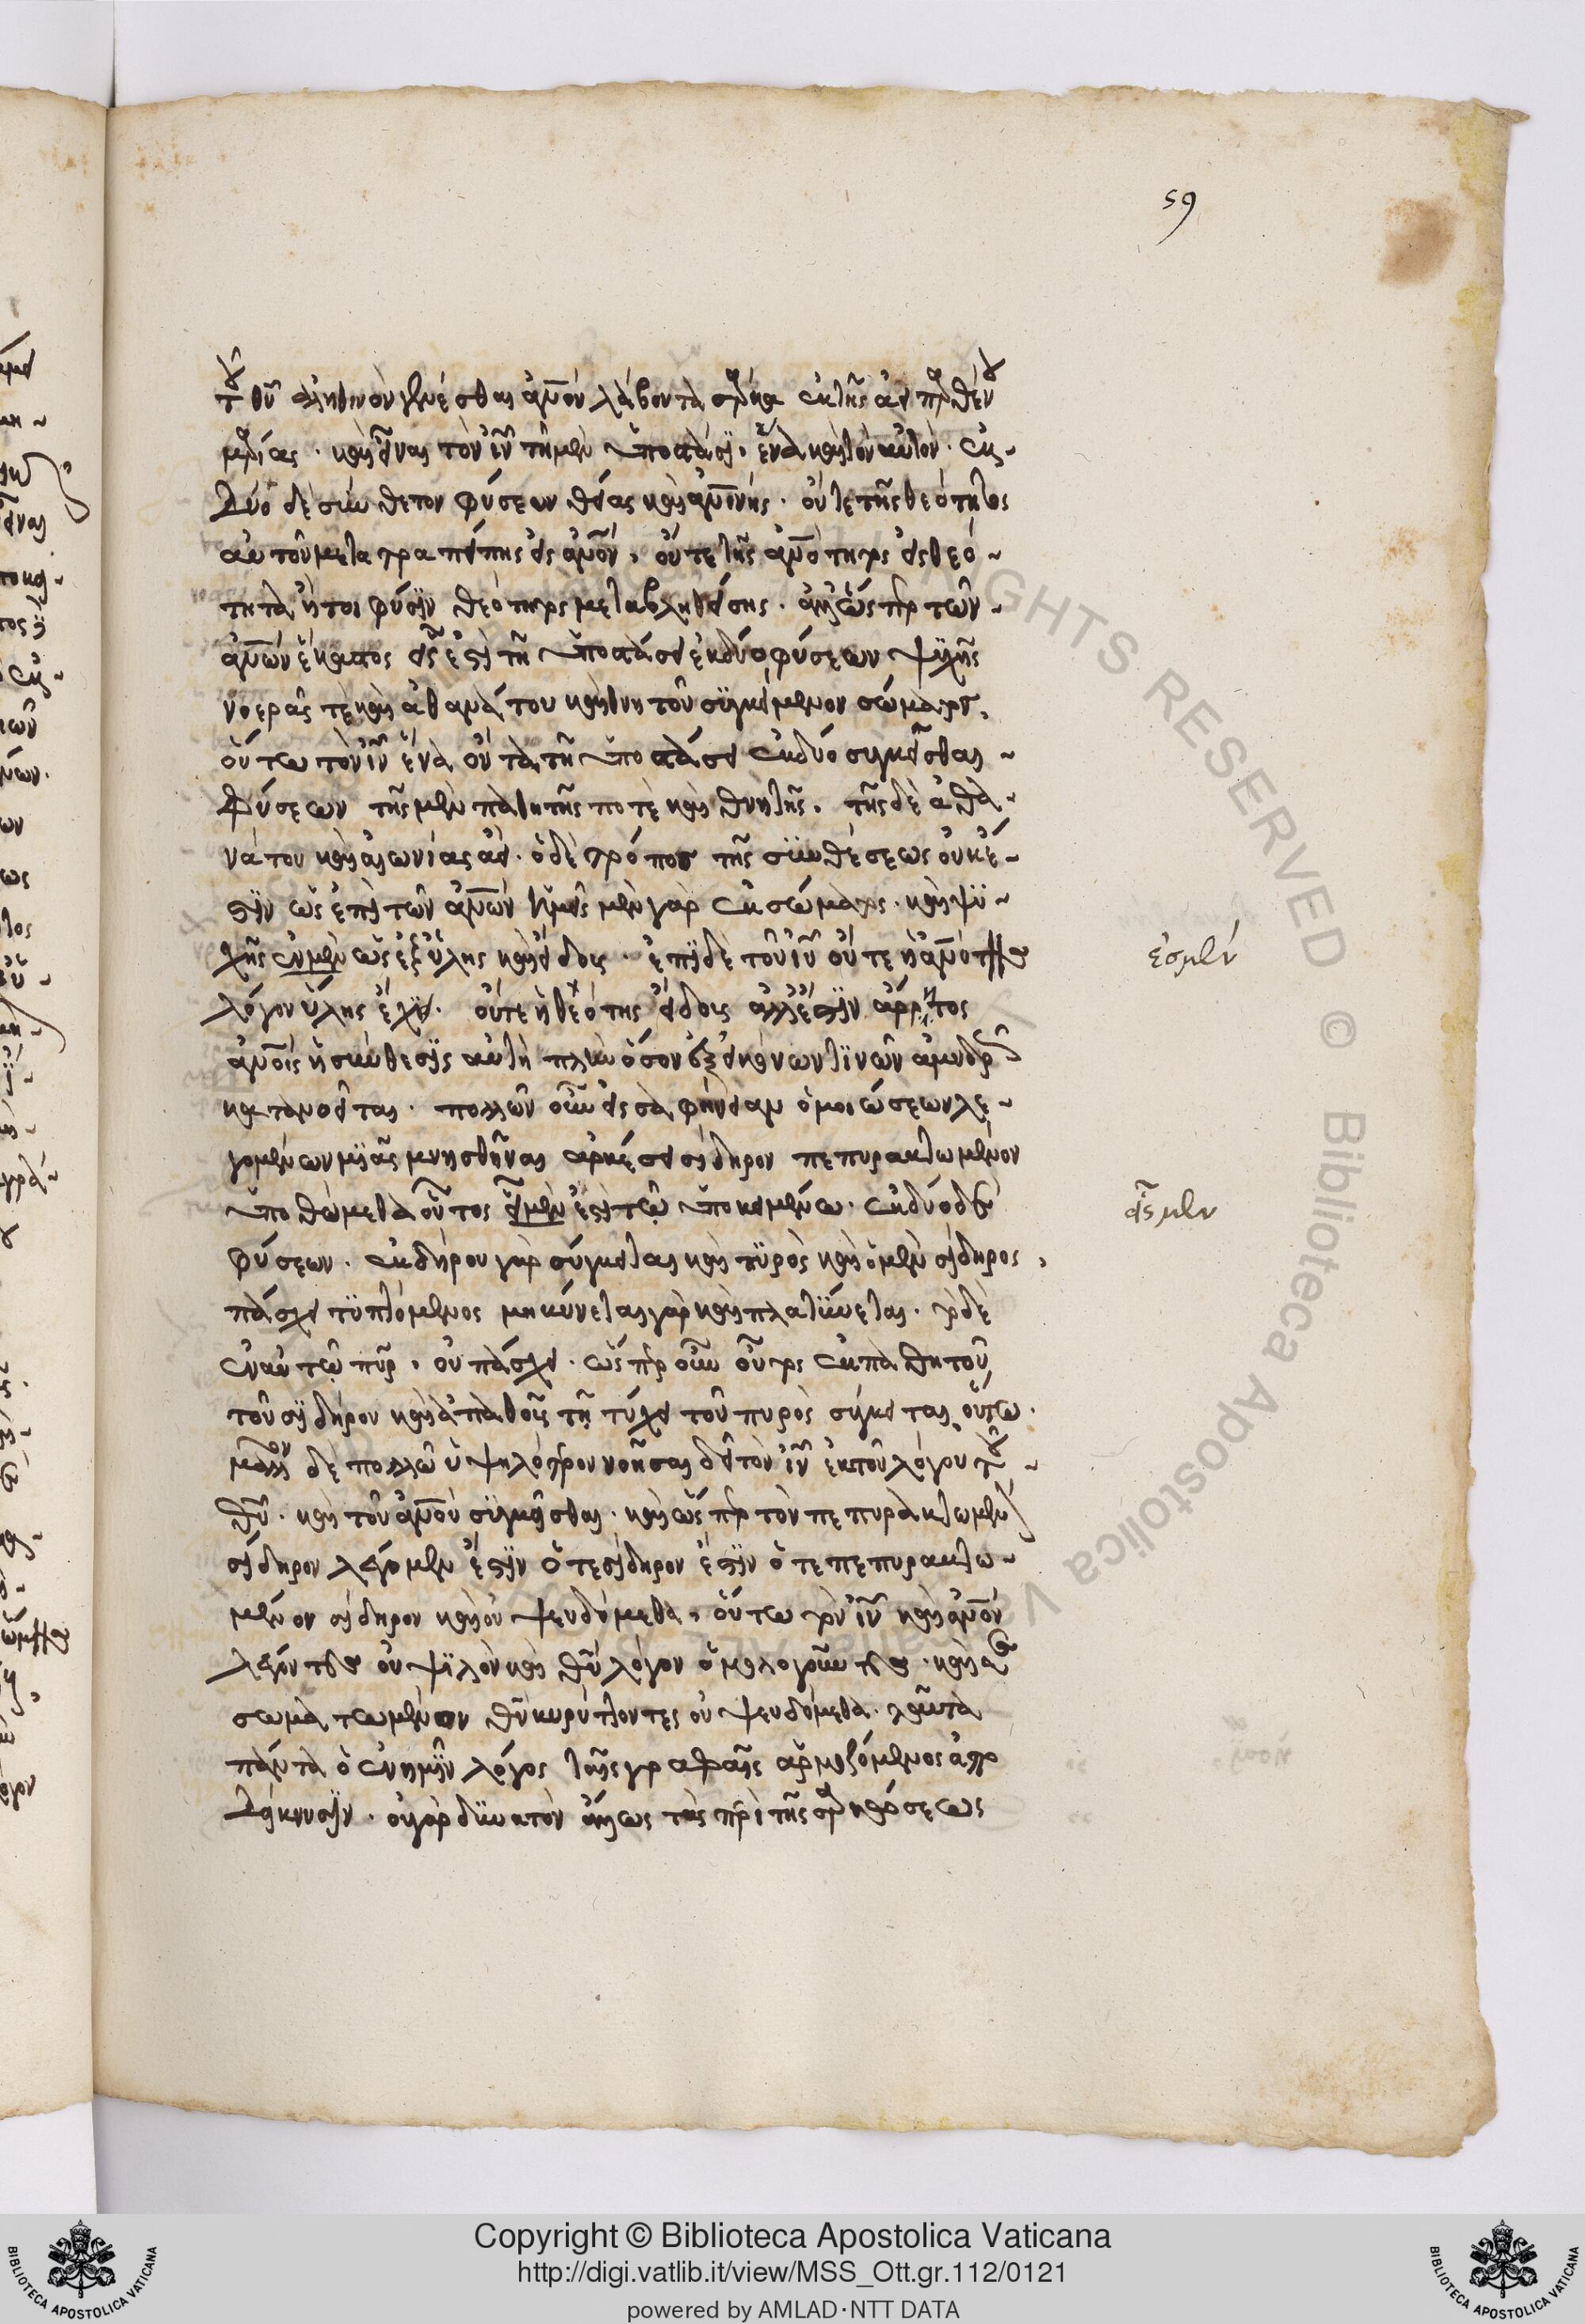 59
τοῦ θῦ ἀληθινὸν γενέσθαι ἄνον λαβόντα σάρκα ἐκ τῆς ἀειπαρθένου
μαρίας. καὶ εἶναι τὸν ἰν τῇ μὲν ὑποστάσει ἕνα καὶ τὸν αὐτὸν. ἐκ
δύο δὲ σύνθετον φύσεων θείας καὶ ἀνίνης. οὔτε τῆς θεότητος
αὐτοῦ μετατραπείσης εἰς ἄνον, οὔτε τῆς ἀνότητος εἰς θεό
τητα ἤτοι φύσιν θεότητος μεταβληθείσης. ἀλλ' ὥσπερ τῶν
ἀνων ἕκαστος εἷς ἐστὶ τῇ ὑποστάσει ἐκ δύο φύσεων ψυχῆς
νοερᾶς τὲ καὶ ἀθανάτου καὶ θνητοῦ συγκείμενον σώματος,
οὕτω τὸν ἰν ἕνα ὄντα τῇ ὑποστάσει ἐκ δύο συγκεῖσθαι
φύσεων τῆς μὲν παθητῆς ποτὲ καὶ θνητῆς. τῆς δὲ ἀθα
νάτου καὶ αἰωνίας ἀεὶ. ὁ δὲ τρόπος τῆς συνθέσεως οὐκ ἔ
στιν ὡς ἐπὶ τῶν ἀνων ἡμεῖς μὲν γὰρ ἐκ σώματος. καὶ ψυ
χῆς ἐσμὲν ὡς ἐξ ὕλης καὶ εἴδους. ἐπὶ δὲ τοῦ ἰυ οὔτε ἡ ἀνότης
ἐσμὲν
λόγον ὕλης ἔχει. οὔτε ἡ θεότης εἴδους ἀλλ' ἔστιν ἄρρητος
ἀνοις ἡ σύνθεσις αὐτὴ πλὴν ὅσον ἐξ εἰκόνων τινῶν ἀμυδρῶς
κατανοεῖται. πολλῶν οὖν εἰς σαφήνειαν ὁμοιώσεων λε
γομένων μιᾶς μνησθῆναι ἀρκέσει σίδηρον πεπυρακτωμένον
ὑποθώμεθα οὗτος εἷς μὲν ἐστὶ τῷ ὑποκειμένω. ἐκ δύο δὲ
εἷς μὲν
φύσεων. ἐκ σιδήρου γὰρ σύγκειται καὶ πυρὸς καὶ ὁ μὲν σίδηρος,
πάσχει τυπτόμενος μηκύνεται γὰρ καὶ πλατύνεται. τὸ δὲ
ἐν αὐτῷ πῦρ, οὐ πάσχει. ὥσπερ οὖν οὗτος ἐκ παθητοῦ
τοῦ σιδήρου καὶ ἀπαθοῦς τῇ τύχει τοῦ πυρὸς σύγκειται, οὕτω
μᾶλλον δὲ πολλῶ ὑψηλότερον νοῆσαι δεῖ τὸν ἰν ἐκ τοῦ λόγου τοῦ
θῦ. καὶ τοῦ ἀνου συγκεῖσθαι. καὶ ὥσπερ τὸν πεπυρακτωμένον
σίδηρον λέγομεν ἔστιν ὅτε σίδηρον ἔστιν ὅτε πεπυρακτω
μένον σίδηρον καὶ οὐ ψευδόμεθα, οὕτω τὸν ἰν καὶ ἄνον
λέγοντες οὐ ψιλὸν καὶ θῦ λόγον ὁμολογοῦντες. καὶ
σωματωμένον θν κηρύττοντες οὐ ψευδόμεθα. ταῦτα
πάντα ὁ ἐν ἡμῖν λόγος ταῖς γραφαῖς ἁρμοζόμενος ἀπο
δείκνυσιν. οὐ γὰρ δυνατὸν ἄλλως τὰς περὶ τῆς σαρκώσεως
Copyright © Biblioteca Apostolica Vaticana
http://digi.vatlib.it/view/MSS_Ott.gr.112/0121
powered by AMLAD·NTT DATA